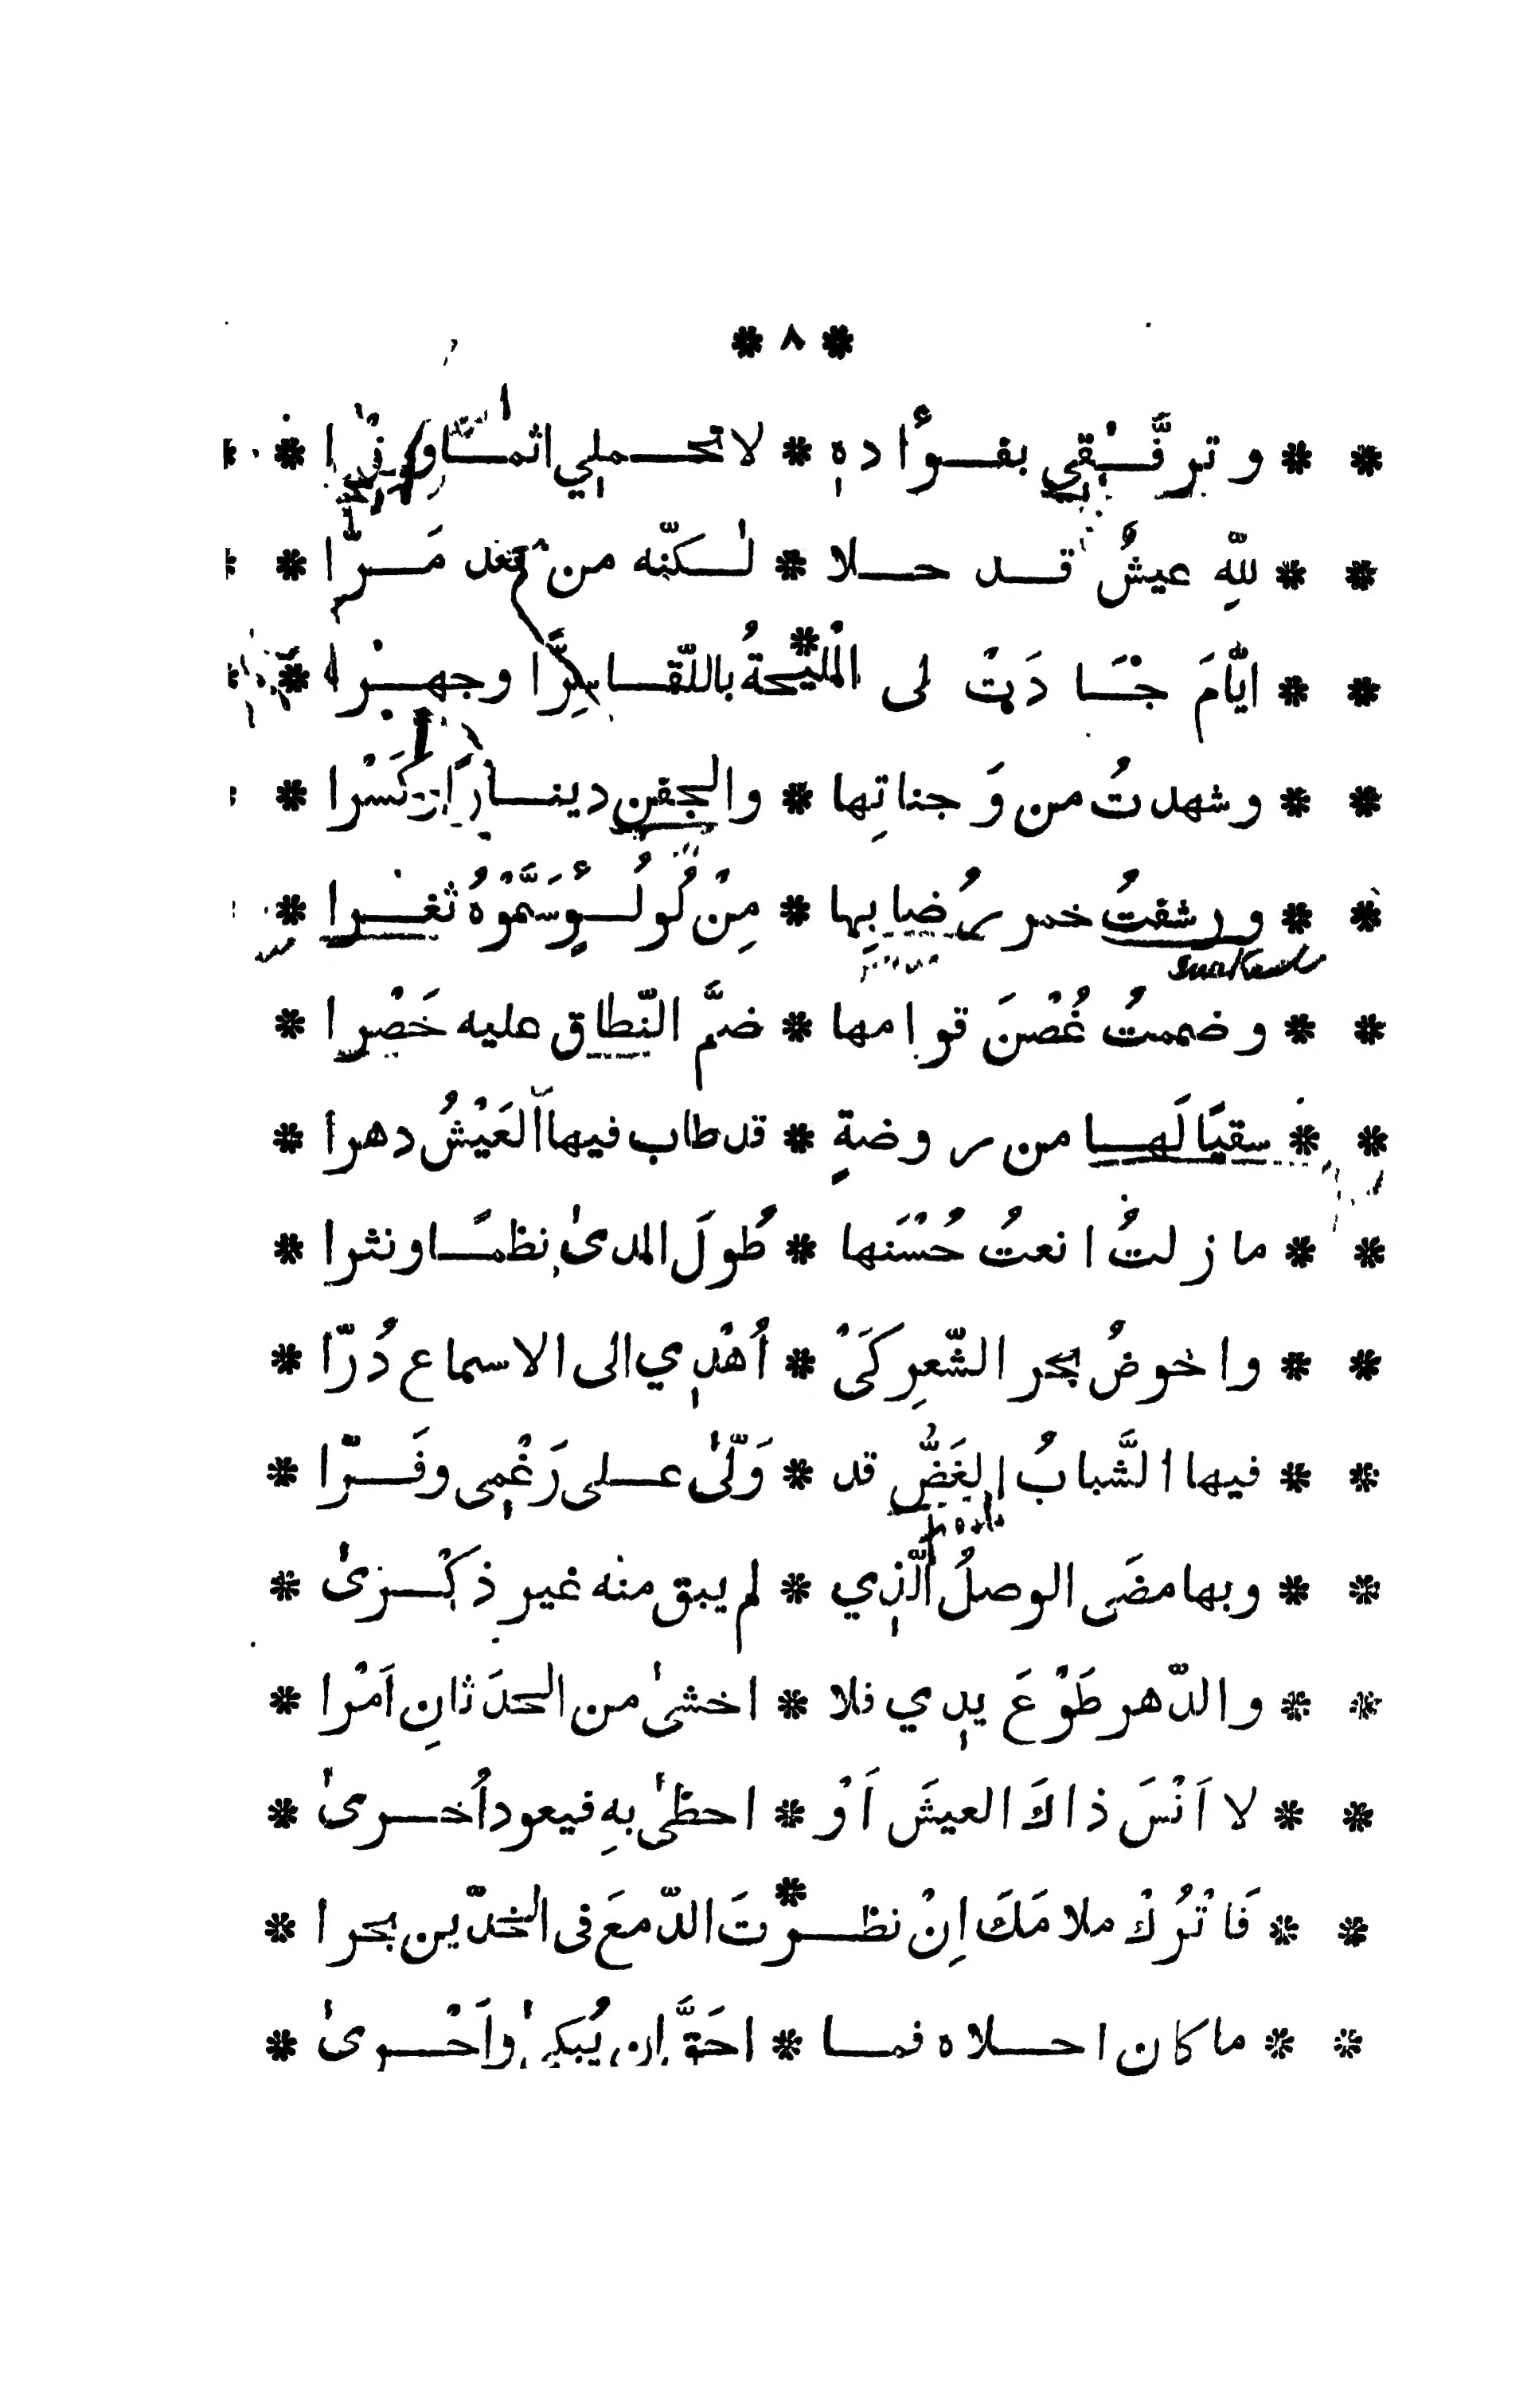 * ٨ *
* * وترفَّقِي بفؤاده * لا تحملي اثمًا ووِزْرا *
* * للّهِ عيشٌ قد حلا * لٰكنّه من بعد مَرّا *
* * ايّامَ جَادَتْ لى الْمليحةُ * باللّقا سِرًّا وجهرا *
* * وشهدتُ من وَجناتِها * والجفنِ دينارًا وكَسْرا *
* * ورشفتُ خمر رُضابِها * مِنْ لُولُوٍ سَمَّوْهُ ثغرا *
* * وضممتُ غُصْنَ قوامها * ضمَّ النّطاق عليه خَصْرا *
* * سقيًا لَها من روضةٍ * قد طاب فيها العَيْشُ دهرا *
* * ما زلتُ انعتُ حُسْنَها * طُولَ المدىٰ نظمًا ونثرا *
* * واخوضُ بحر الشّعرِ كَىْ * اُهْدِي الى الاسماع دُرّا *
* * فيها الشَّبابُ الغَضُّ قد * وَلّىٰ على رَغْمِى وفَرّا *
* * وبها مضَى الوصلُ الّذِي * لم يبق منه غير ذكْرىٰ *
* * والدّهر طَوْعَ يدِي فلا * اخشىٰ من الحدَثانِ اَمْرا *
* * لا اَنْسَ ذاكَ العيشَ اَوْ * احظىٰ بهِ فيعود اُخرىٰ *
* * فَاتْرُكْ ملامَكَ اِنْ نظرْتَ * الدّمعَ فى الخدّين بحرا *
* * ما كان احلاه فما * احَقَّ ان يُبكىٰ واَحْرىٰ *